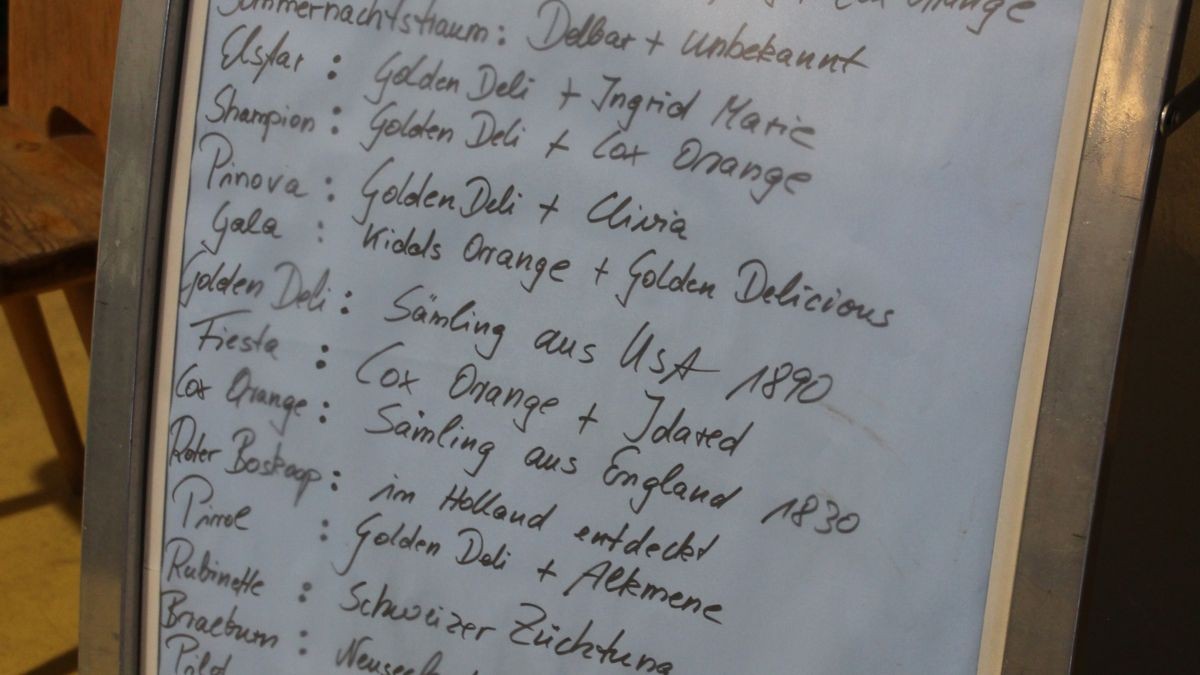 Orange
Sommernachtstraum: Delbar + Unbekannt
Elstar : Golden Deli + Ingrid Marie
Shampion : Golden Deli + Cox Orange
Pinova : Golden Deli + Clivia
Gala : Kidds Orange + Golden Delicious
Golden Deli : Sämling aus USA 1890
Fiesta : Cox Orange + Idared
Cox Orange : Sämling aus England 1830
Roter Boskoop : in Holland entdeckt
Pirol : Golden Deli + Alkmene
Rubinette : Schweizer Züchtung
Braeburn :